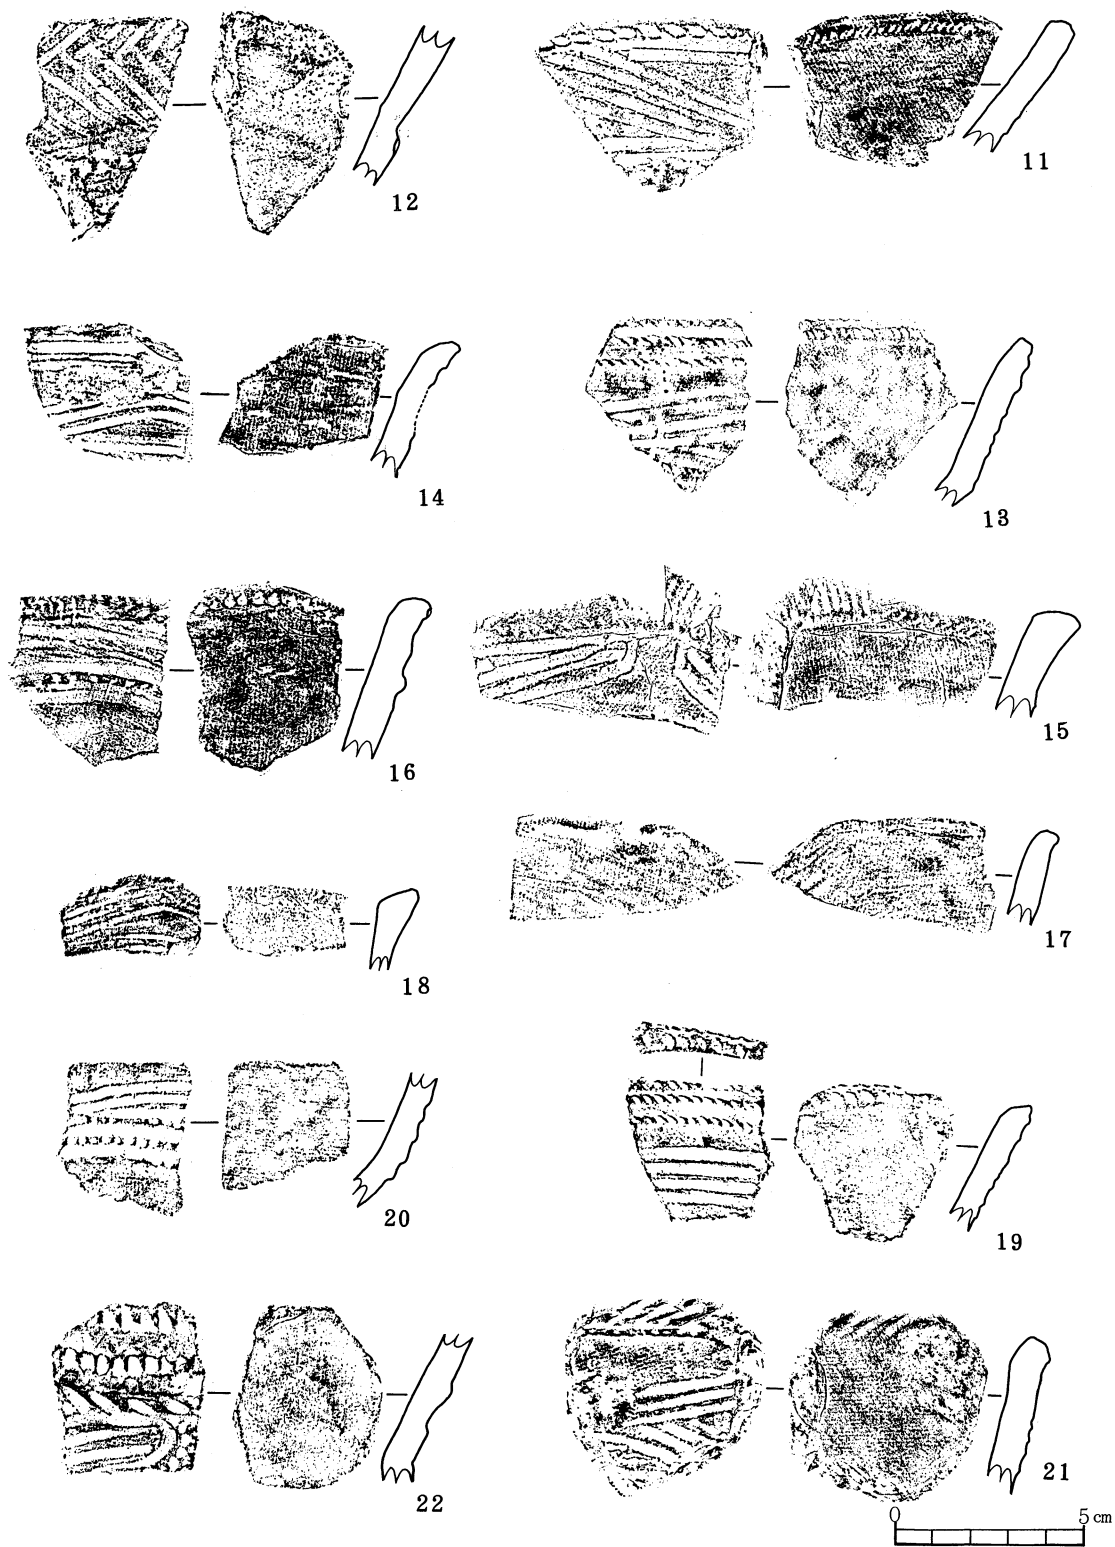 12
11
14
13
16
15
18
17
20
19
22
21
0 5 cm